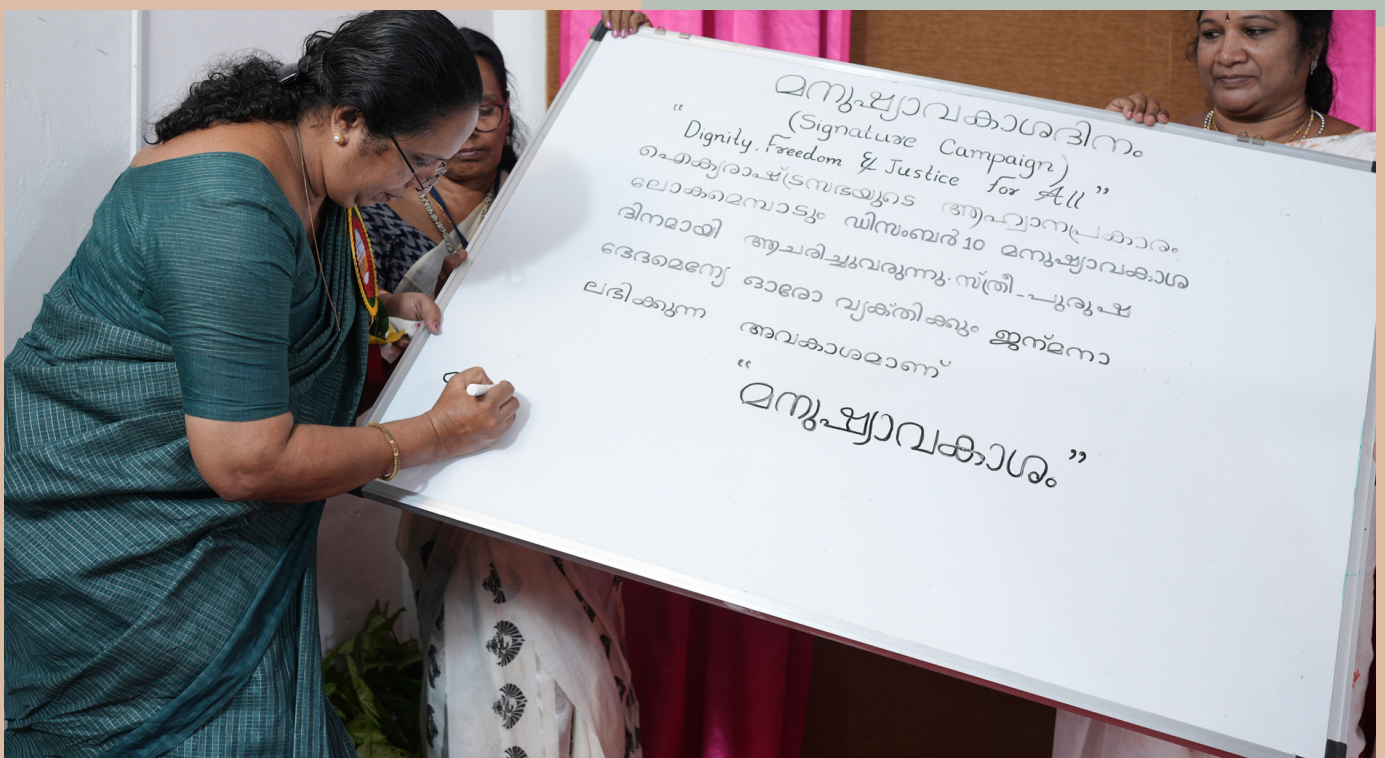 മനുഷ്യാവകാശദിനം
(Signature Campaign)
“Dignity. Freedom & Justice for All”
ഐക്യരാഷ്ട്രസഭയുടെ ആഹ്വാനപ്രകാരം
ലോകമെമ്പാടും ഡിസംബർ 10 മനുഷ്യാവകാശ
ദിനമായി ആചരിച്ചുവരുന്നു. സ്ത്രീ - പുരുഷ
ഭേദമെന്യേ ഓരോ വ്യക്തിക്കും ജന്മനാ
ലഭിക്കുന്ന അവകാശമാണ്
“മനുഷ്യാവകാശം”